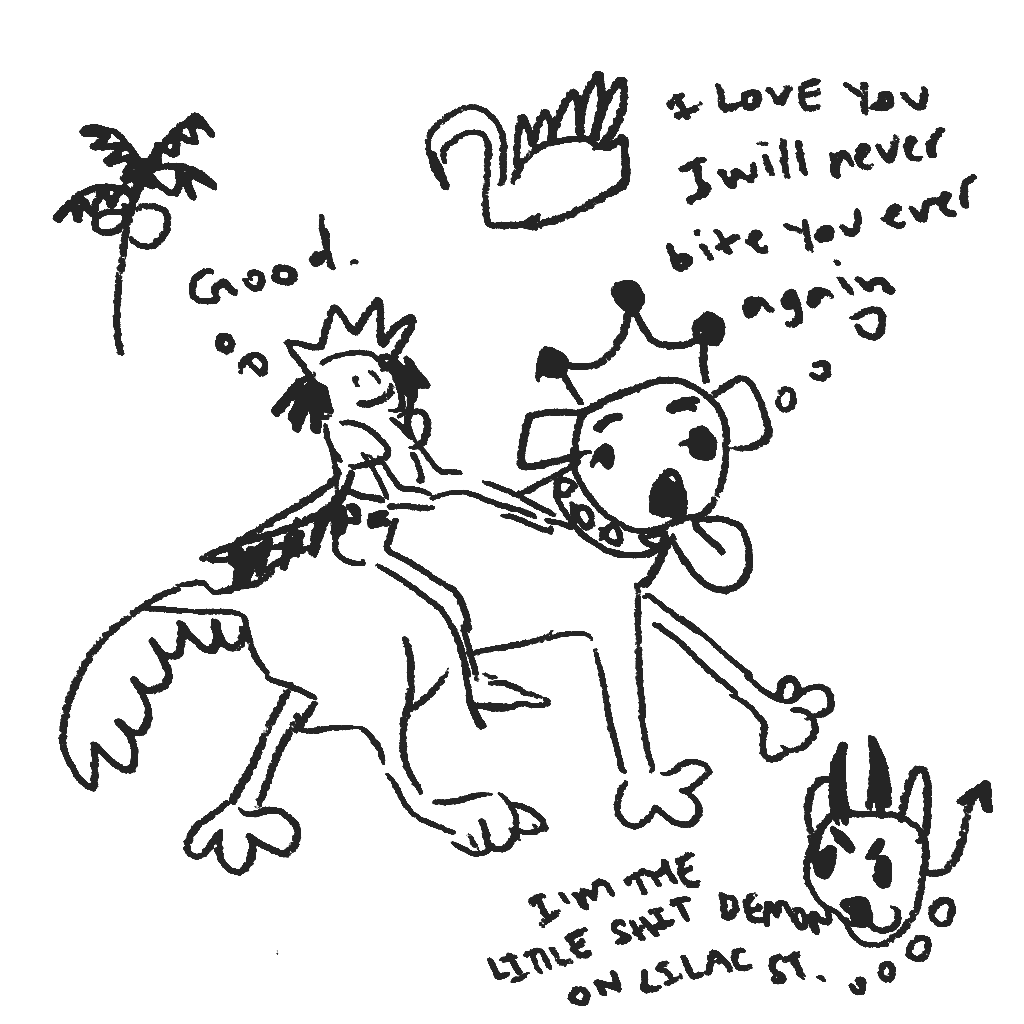 I LOVE You
I will never
bite You ever
again
Good.
I'M THE
LITTLE SHIT DEMON
ON LILAC ST.